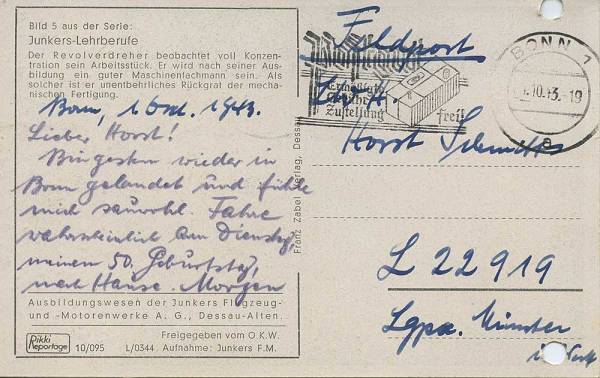 Bild 5 aus der Serie:
Junkers-Lehrberufe
Der Revolverdreher beobachtet voll Konzen-
tration sein Arbeitsstück. Er wird nach seiner Aus-
bildung ein guter Maschinenfachmann sein. Als
solcher ist er unentbehrliches Rückgrat der mecha-
nischen Fertigung.
Bonn, 1 Okt. 1943.
Lieber Horst!
Bin gestern wieder in
Bonn gelandet und fühle
mich sauwohl. Fahre
wahrscheinlich am Dienstag,
meinen 50. Geburtstag,
nach Hause. Morgen
Ausbildungswesen der Junkers Flugzeug-
und -Motorenwerke A. G., Dessau-Alten.
Rikki
Reportage
10/095 L/0344. Aufnahme: Junkers F.M.
Freigegeben vom O.K.W.
Franz Zabel Verlag, Dessau
Feldpost
Zustellung
frei!
BONN 1
10.43.-19
Horst
L 22919
Lgpa. Münster
i/Westf